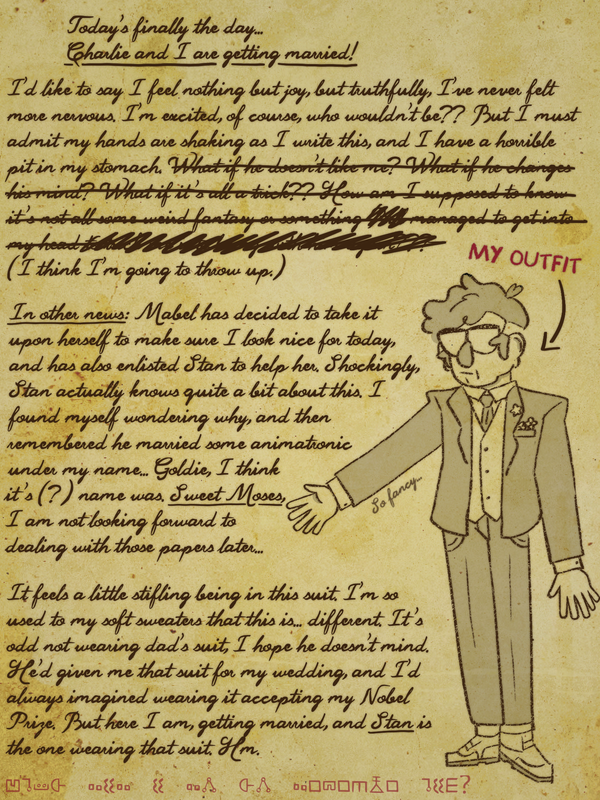 Today's finally the day...
Charlie and I are getting married!
I'd like to say I feel nothing but joy, but truthfully, I've never felt
more nervous. I'm excited, of course, who wouldn't be?? But I must
admit my hands are shaking as I write this, and I have a horrible
pit in my stomach. What if he doesn't like me? What if he changes
his mind? What if it's all a trick?? How am I supposed to know
it's not all some weird fantasy or something managed to get into
my head
(I think I'm going to throw up.)
MY OUTFIT
In other news: Mabel has decided to take it
upon herself to make sure I look nice for today,
and has also enlisted Stan to help her. Shockingly,
Stan actually knows quite a bit about this. I
found myself wondering why, and then
remembered he married some animatronic
under my name... Goldie, I think
it's (?) name was. Sweet Moses,
I am not looking forward to
dealing with those papers later...
So fancy...
It feels a little stifling being in this suit. I'm so
used to my soft sweaters that this is... different. It's
odd not wearing dad's suit, I hope he doesn't mind.
He'd given me that suit for my wedding, and I'd
always imagined wearing it accepting my Nobel
Prize. But here I am, getting married, and Stan is
the one wearing that suit. Hm.